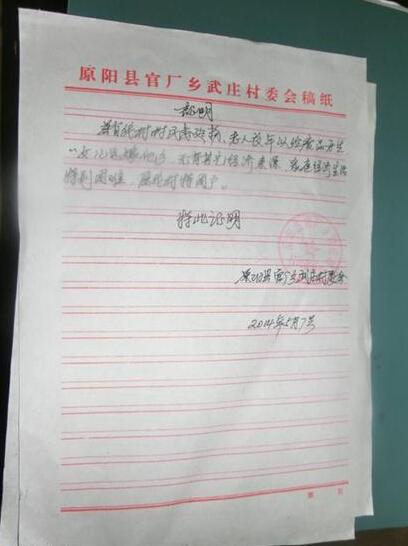 原阳县官厂乡武庄村委会稿纸
证明
兹有我村村民 老人 年以 废品为生
女儿 他乡 无有其它经济来源 家庭经济生活
特别困难 属我村特困户。
特此证明
原阳县官厂乡 庄村委会
2014年5月7号
第 页